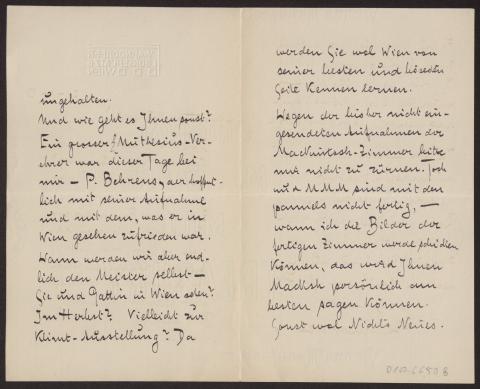 ungehalten.
Und wie geht es Ihnen sonst?
Ein grosser Muthesius-Ver-
ehrer war dieser Tage bei
mir — P. Behrens, der hoffent-
lich mit seiner Aufnahme
und mit dem, was er in
Wien gesehen zufrieden war.
Wann werden wir aber end-
lich den Meister selbst —
Sie und Gattin in Wien sehen?
Im Herbst? Vielleicht zur
Klimt-Ausstellung? Da
werden Sie wol Wien von
seiner besten und
Seite kennen lernen.
Wegen der bisher nicht ein-
gesendeten Aufnahmen der
Mackintosh-Zimmer bitte
mir nicht zu zürnen. Tosh
und M M M sind mit den
pannels nicht fertig, —
wann ich die Bilder der
fertigen Zimmer werde schicken
können, das wird Ihnen
Macksh persönlich am
besten sagen können.
Sonst wol Nichts Neues.